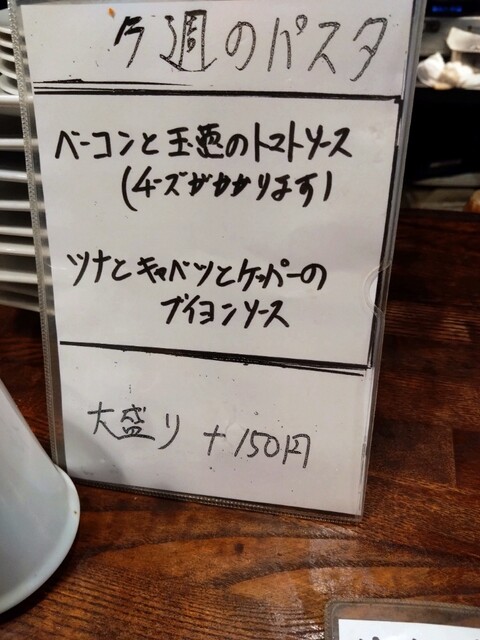 今週のパスタ
ベーコンと玉葱のトマトソース
(チーズがかかります)
ツナとキャベツとケッパーの
ブイヨンソース
大盛り +150円